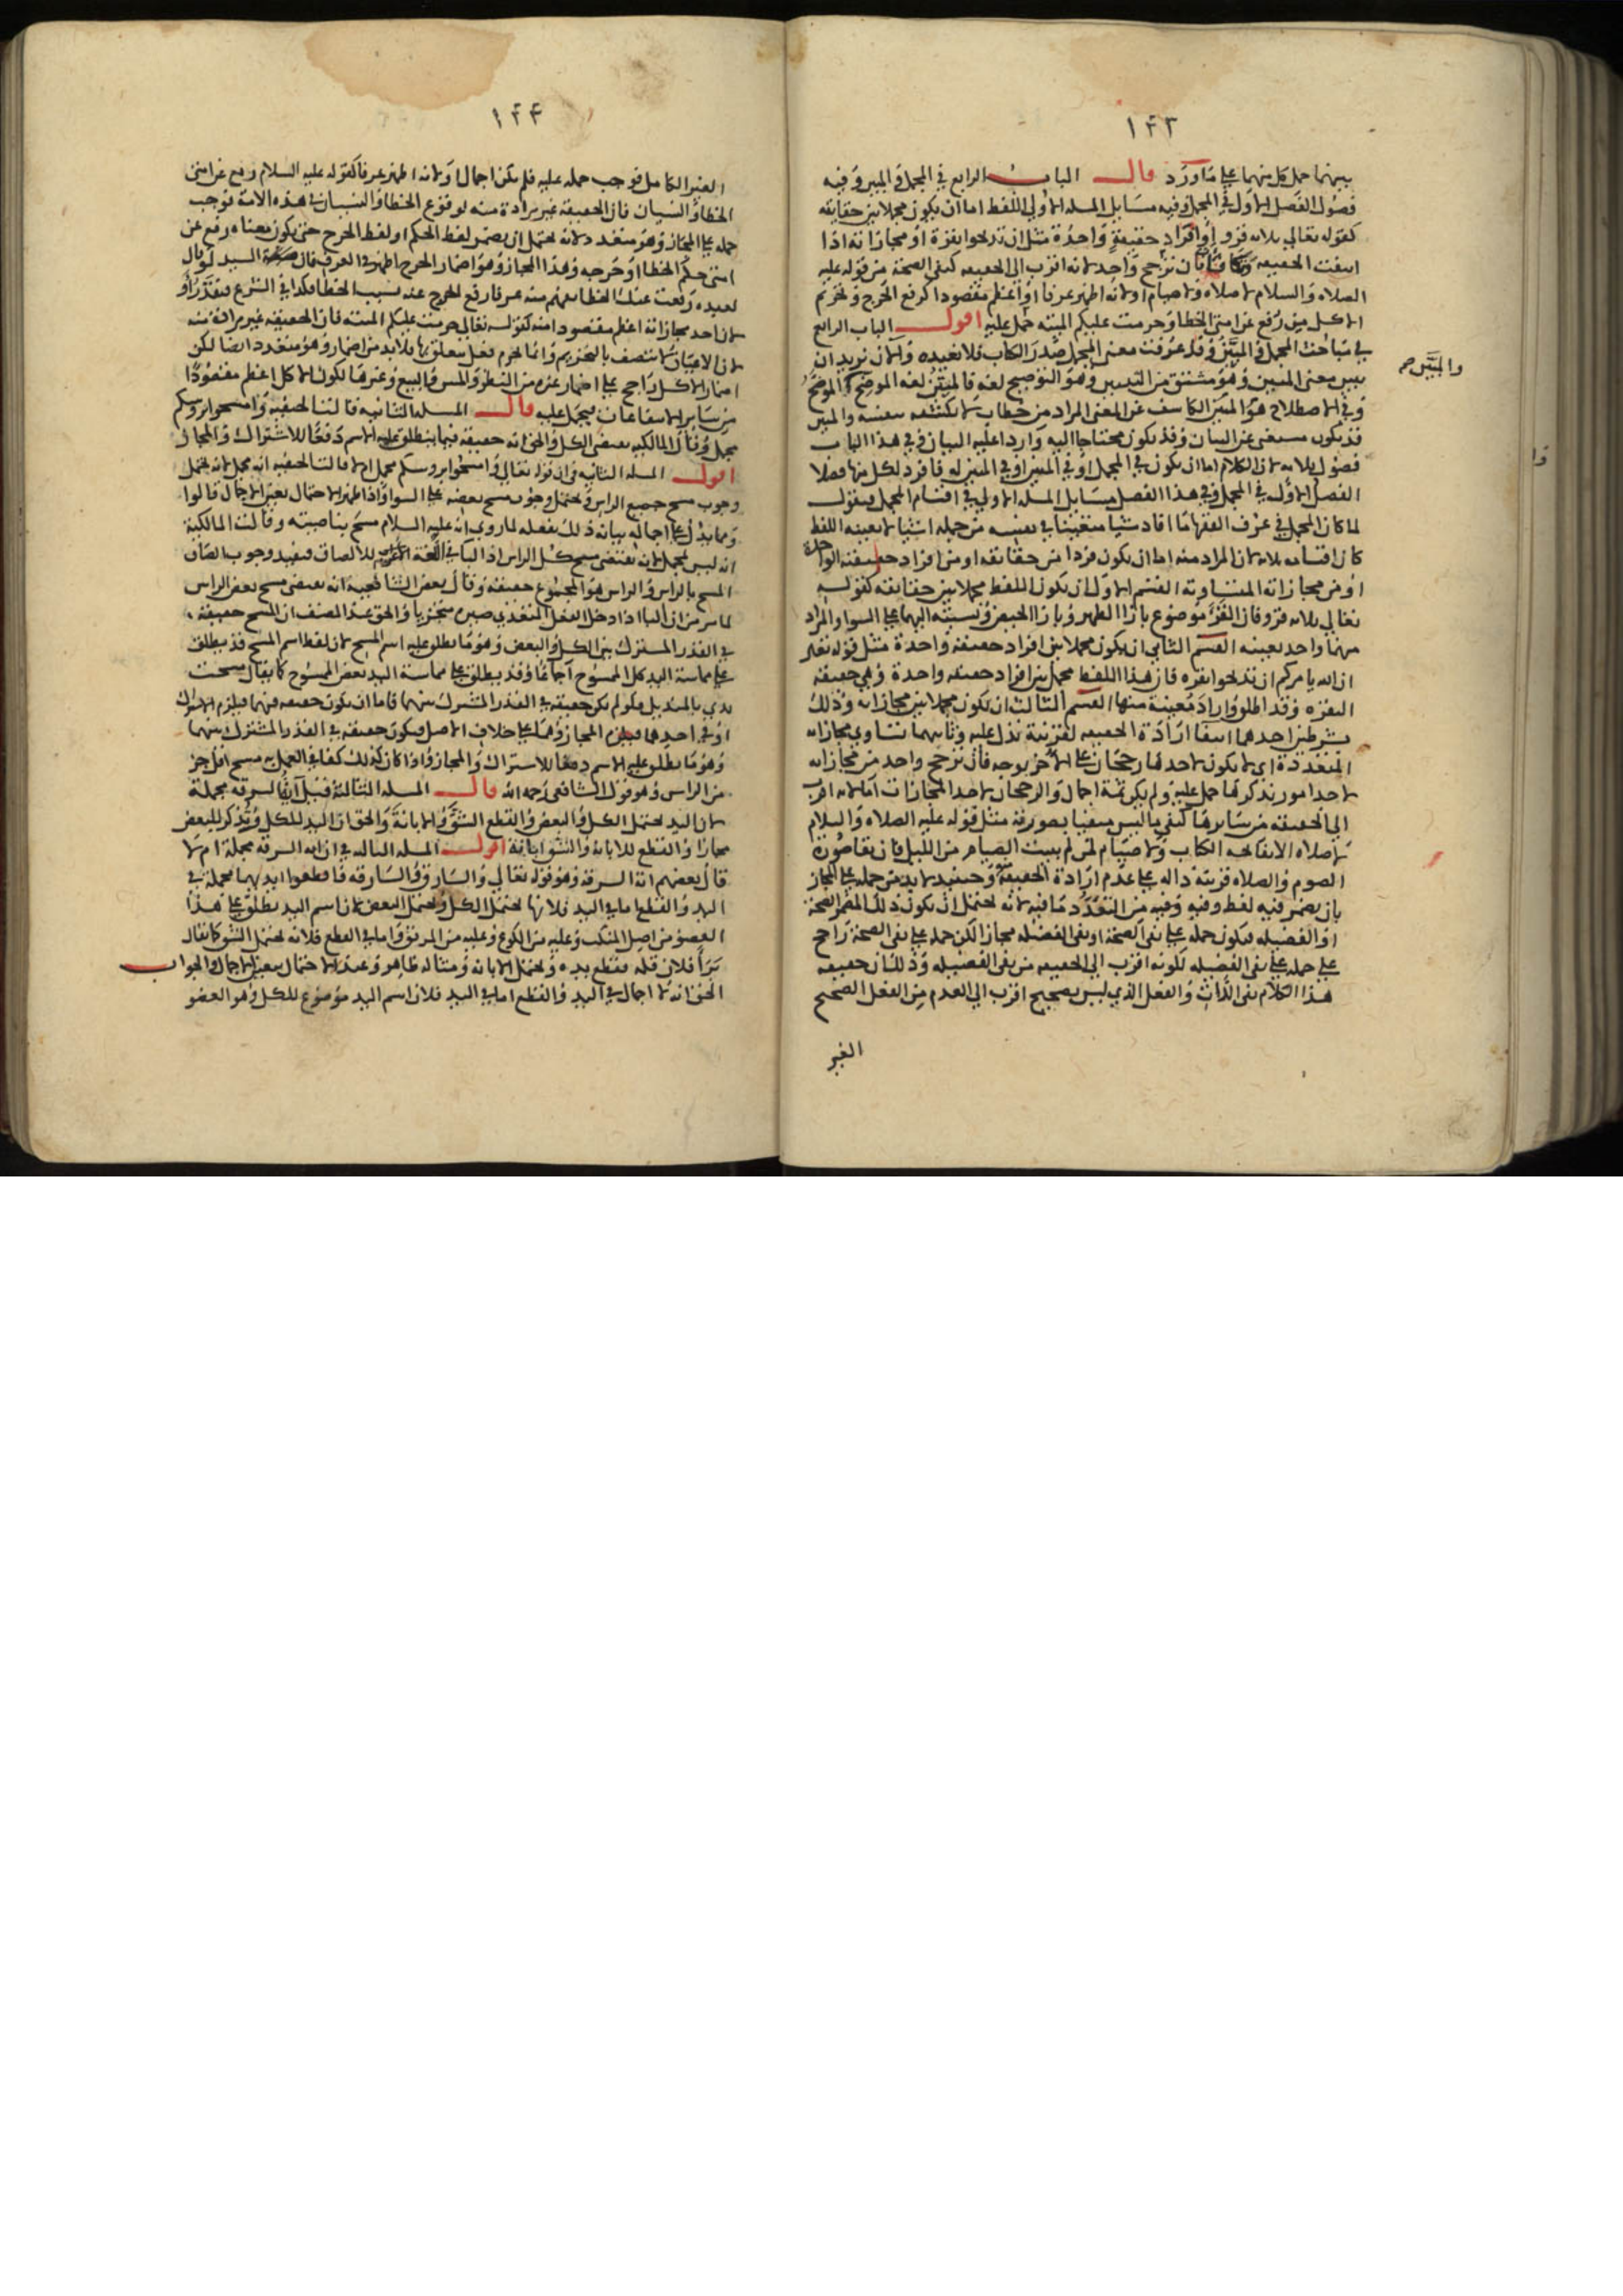 ١٤٣
بينهما حمل كل منهما على ما ورد قال الباب الرابع في المجمل والمبين وفيه
فصول الفصل الاول في المجمل وفيه مسايل المسله الاولي اللفظ اما ان يكون مجملا بين حقايقه
كقوله تعالي ثلاثه قرو او افراد حقيقة واحدة مثل ان تذبحوا بقرة او مجازاته اذا
انتفت الحقيقه وتكافأت فان ترجح واحد لانه اقرب الى الحقيقه كنفي الصحة من قوله عليه
الصلاه والسلام لا صلاه ولا صيام او لانه اظهر عرفا او اعظم مقصودا كرفع الحرج وتحريم
الاكل من رفع عن امتي الخطا وحرمت عليكم الميته حمل عليه اقول الباب الرابع
في مباحث المجمل والمبين وقد عرفت معنى المجمل صدر الكتاب فلا نعيده والان نريد ان
نبين معنى المبين وهو مشتق من التبيين وهو التوضيح لغه فالمبين لغه الموضح والموضح
والمبين صح
وفي الاصطلاح هو المبين الكاشف عن المعنى المراد من خطاب لا يكشفه بنفسه والمبين
قد يكون مستغنى عن البيان وقد يكون محتاجا اليه واردا عليه البيان وفي هذا الباب
فصول ثلاثه لان الكلام اما ان يكون في المجمل او في المبين او في المبين له فافرد لكل منها فصلا
الفصل الاول في المجمل وفي هذا الفصل مسايل المسله الاولي في اقسام المجمل فنقول
لما كان المجمل في عرف الفقها ما افاد شيا متعينا في نفسه من جملة اشيا لا يعينه اللفظ
كان اقسامه ثلاثه لان المراد منه اما ان يكون فردا من حقائقه او من افراد حقيقته الواحدة
او من مجازاته المتساوية القسم الاول ان يكون اللفظ مجملا بين حقائقه كقوله
تعالي ثلاثه قرو فان القرء موضوع بازا الطهر وبازا الحيض ونسبته اليهما على السوا والمراد
منهما واحد بعينه القسم الثاني ان يكون مجملا بين افراد حقيقه واحدة مثل قوله تعالى
ان الله يامركم ان تذبحوا بقره فان هذا اللفظ مجمل بين افراد حقيقه واحدة وهي حقيقة
البقره وقد اطلق واراد معينة منها القسم الثالث ان يكون مجملا بين مجازاته وذلك
بشرطين احدهما انتفا ارادة الحقيقه لقرينة تدل عليه وثانيهما تساوي مجازاته
المتعددة اي لا يكون لاحدها رجحان على الآخر بوجه فان ترجح واحد من مجازاته
لاحد امور نذكرها حمل عليه ولم يكن ثمة اجمال والرجحان لاحد المجازات اما لانه اقرب
الى الحقيقه من سايرها كنفي ما ليس منفيا بصورته مثل قوله عليه الصلاه والسلام
لا صلاه الا بفاتحه الكتاب ولا صيام لمن لم يبيت الصيام من الليل فان
الصوم والصلاه قرينة داله على عدم ارادة الحقيقة وحينئذ لا بد من حمله على المجاز
بان يضمر فيه لفظ وفيه من التعدد ما فيه لانه يحتمل ان يكون ذلك المضمر الصحة
او الفضيله فيكون حمله على نفي الصحة او نفي الفضيله مجازا لكن حمله على نفي الصحة راجح
على حمله على نفي الفضيله لكونه اقرب الى الحقيقه من نفي الفضيله وذلك لان حقيقه
هذا الكلام نفي الذات والفعل الذي ليس بصحيح اقرب الى العدم من الفعل الصحيح
الغير
١٤٤
الغير الكامل فوجب حمله عليه فلم يكن اجمال او لانه اظهر عرفا كقوله عليه السلام رفع عن امتي
الخطا والنسيان فان الحقيقة غير مرادة منه لوقوع الخطا والنسيان في هذه الامة فوجب
حمله على المجاز وهو متعدد لانه يحتمل ان يضمر لفظ الحكم او لفظ الحرج حتى يكون معناه رفع عن
امتي حكم الخطا او حرجه وهذا المجاز وهو اضمار الحرج اظهر في العرف فان السيد لو قال
لعبده رفعت عنك الخطا يفهم منه عرفا رفع الحرج عنه بسبب الخطا فكذا في الشرع
لان احد مجازاته اعظم مقصودا منه كقوله تعالى حرمت عليكم الميته فان الحقيقه غير مرادة منه
لان الاعيان لا تتصف بالتحريم وانما يحرم فعل متعلق بها فلا بد من اضمار وهو متعدد ايضا لكن
اضمار الاكل راجح على اضمار غيره من النظر واللمس والبيع وغيرها لكون الاكل اعظم مقصودا
من ساير الانتفاعات فيحمل عليه قال المسله الثانيه قالت الحنفيه وامسحوا بروسكم
مجمل وقال المالكيه يقتضي الكل والحق انه حقيقه فيما ينطلق عليه الاسم دفعا للاشتراك والمجاز
اقول المسله الثانيه في ان قوله تعالى وامسحوا بروسكم مجمل ام لا قالت الحنفيه انه مجمل لانه يحتمل
وجوب مسح جميع الراس ويحتمل وجوب مسح بعضه على السوا واذا ظهر الاحتمال تعين الاجمال قالوا
ومما يدل على اجماله بيانه ذلك بفعله لما روي انه عليه السلام مسح بناصيته وقالت المالكية
انه ليس بمجمل لانه يقتضي مسح كل الراس اذ البا في اللغة للالصاق فيفيد وجوب الصاق
المسح بالراس والراس هو المجموع حقيقه وقال بعض الشافعية انه يقتضي مسح بعض الراس
لما مر من ان البا اذا دخل الفعل المتعدي صيره متجزيا والحق عند المصنف ان المسح حقيقة
في القدر المشترك بين الكل والبعض وهو ما ينطلق عليه اسم المسح لان لفظ اسم المسح قد يطلق
على مماسة اليد كل الممسوح اجماعا وقد يطلق على مماسة اليد بعض الممسوح كما يقال مسحت
يدي بالمنديل فلو لم يكن حقيقة في القدر المشترك بينهما فاما ان يكون حقيقه فيهما فيلزم الاشتراك
او في احدهما فيلزم المجاز وهما على خلاف الاصل فيكون حقيقه في القدر المشترك بينهما
وهو ما ينطلق عليه الاسم دفعا للاشتراك والمجاز واذا كان كذلك كفى في العمل به مسح اقل جز
من الراس وهو قول الشافعي رحمه الله قال المسله الثالثة قيل آية السرقه مجملة
لان اليد تحتمل الكل والبعض والقطع الشق والابانة والحق ان اليد للكل وتذكر للبعض
مجازا والقطع للابانه والشق ابانة اقول المسله الثالثه في ان آيه السرقه مجملة ام لا
قال بعضهم آية السرقه وهو قوله تعالي والسارق والسارقه فاقطعوا ايديهما مجملة في
اليد والقطع اما في اليد فلانها تحتمل الكل وتحتمل البعض لان اسم اليد يطلق على هذا
العضو من اصل المنكب وعليه من الكوع وعليه من المرفق واما في القطع فلانه يحتمل الشق كما يقال
برا فلان قلمه فقطع يده ويحتمل الابانه ومثاله ظاهر وعند الاحتمال يتعين الاجمال والجواب
الحق انه لا اجمال في اليد والقطع اما في اليد فلان اسم اليد موضوع للكل وهو العضو